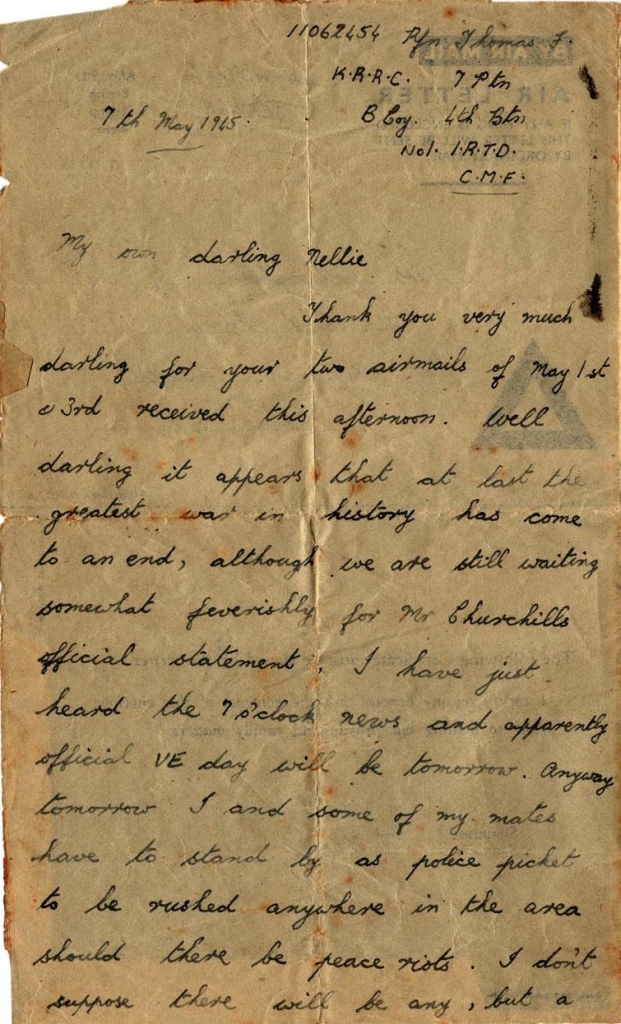 11062454 Rfn Thomas F.
K.R.R.C. 7 Ptn
7th May 1945. B Coy. 4th Btn
No1. I.R.T.D.
C.M.F.
AIR LETTER
My own darling Nellie
Thank you very much
darling for your two airmails of May 1st
& 3rd received this afternoon. Well
darling it appears that at last the
greatest war in history has come
to an end, although we are still waiting
somewhat feverishly for Mr Churchills
official statement, I have just
heard the 7 o'clock news and apparently
official VE day will be tomorrow. Anyway
tomorrow I and some of my mates
have to stand by as police picket
to be rushed anywhere in the area
should there be peace riots. I don't
suppose there will be any, but a